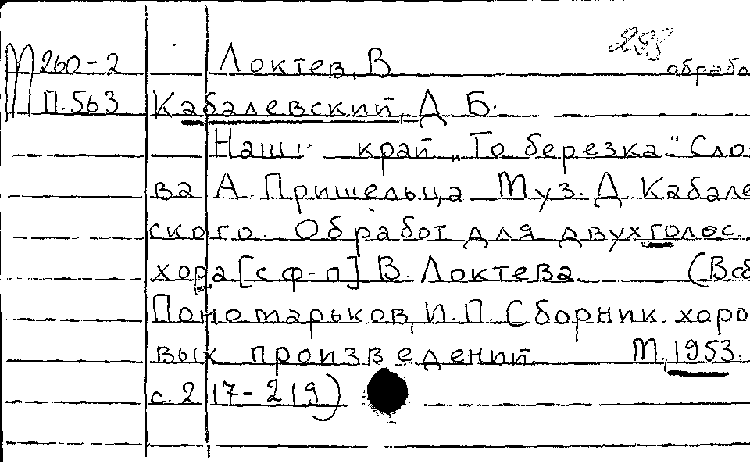 М 260-2 Локтев, В
обрабо
П. 563 Кабалевский, Д Б.
Наш край „То березка" Сло
ва А. Пришельца Муз. Д Кабале
ского. Обработ для двухголос
хора [с ф-п] В. Локтева (В сб
Пономарьков, И. П. Сборник хоро
вых произведений М, 1953.
с. 217-219)